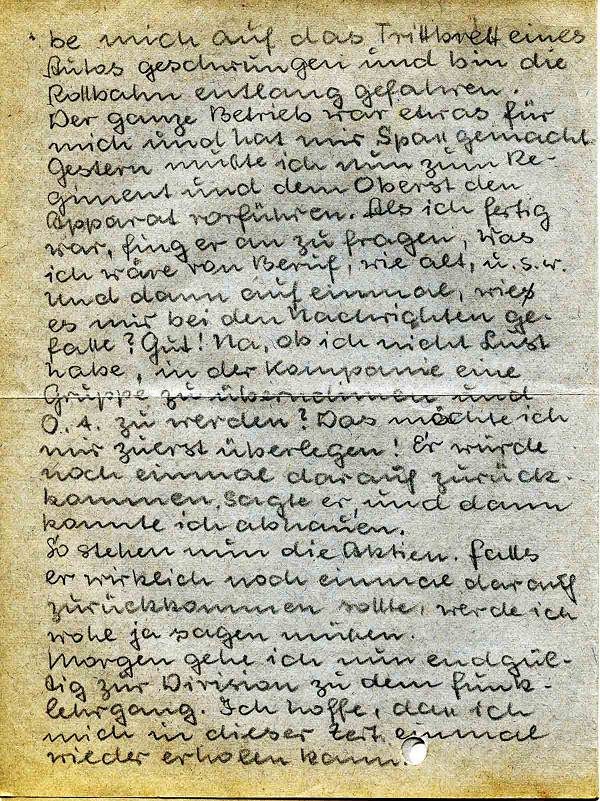 be mich auf das Trittbrett eines
Autos geschwungen und bin die
Rollbahn entlang gefahren.
Der ganze Betrieb war etwas für
mich und hat mir Spaß gemacht.
Gestern mußte ich nun zum Re-
giment und dem Oberst den
Apparat vorführen. Als ich fertig
war, fing er an zu fragen, was
ich wäre von Beruf, wie alt, u.s.w.
Und dann auf einmal, wies
es mir bei den Nachrichten ge-
falle? Gut! Na, ob ich nicht Lust
habe, in der Kompanie eine
Gruppe zu übernehmen und
O.A. zu werden? Das möchte ich
mir zuerst überlegen! Er würde
noch einmal darauf zurück-
kommen, sagte er, und dann
konnte ich abhauen.
So stehen nun die Aktien. Falls
er wirklich noch einmal darauf
zurückkommen sollte, werde ich
wohl ja sagen müßen.
Morgen gehe ich nun endgül-
tig zur Division zu dem Funk-
lehrgang. Ich hoffe, daß ich
mich in dieser Zeit einmal
wieder erholen kann.